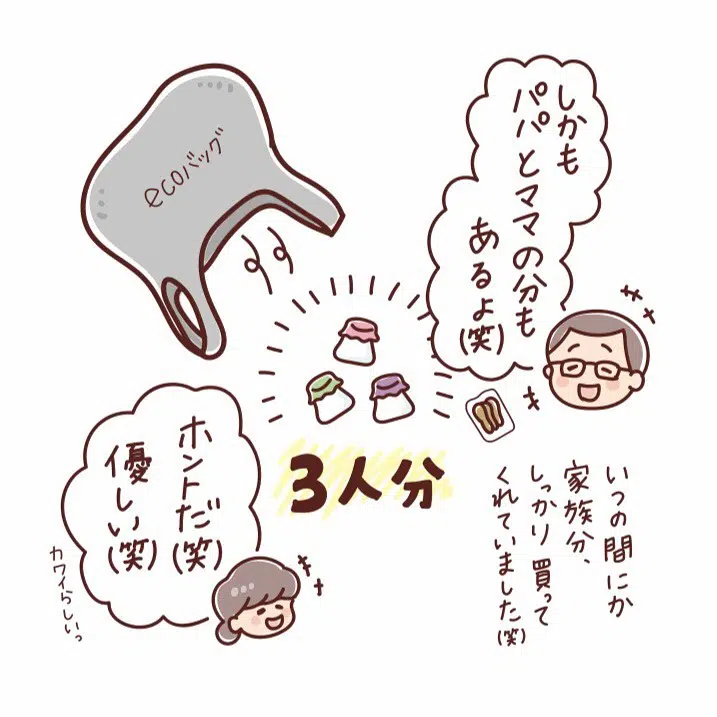 しかも
パパとママの分も
あるよ(笑)
ecoバッグ
3人分
ホントだ(笑)
優しい(笑)
カワイらしいっ
いつの間にか
家族分、
しっかり買って
くれていました(笑)